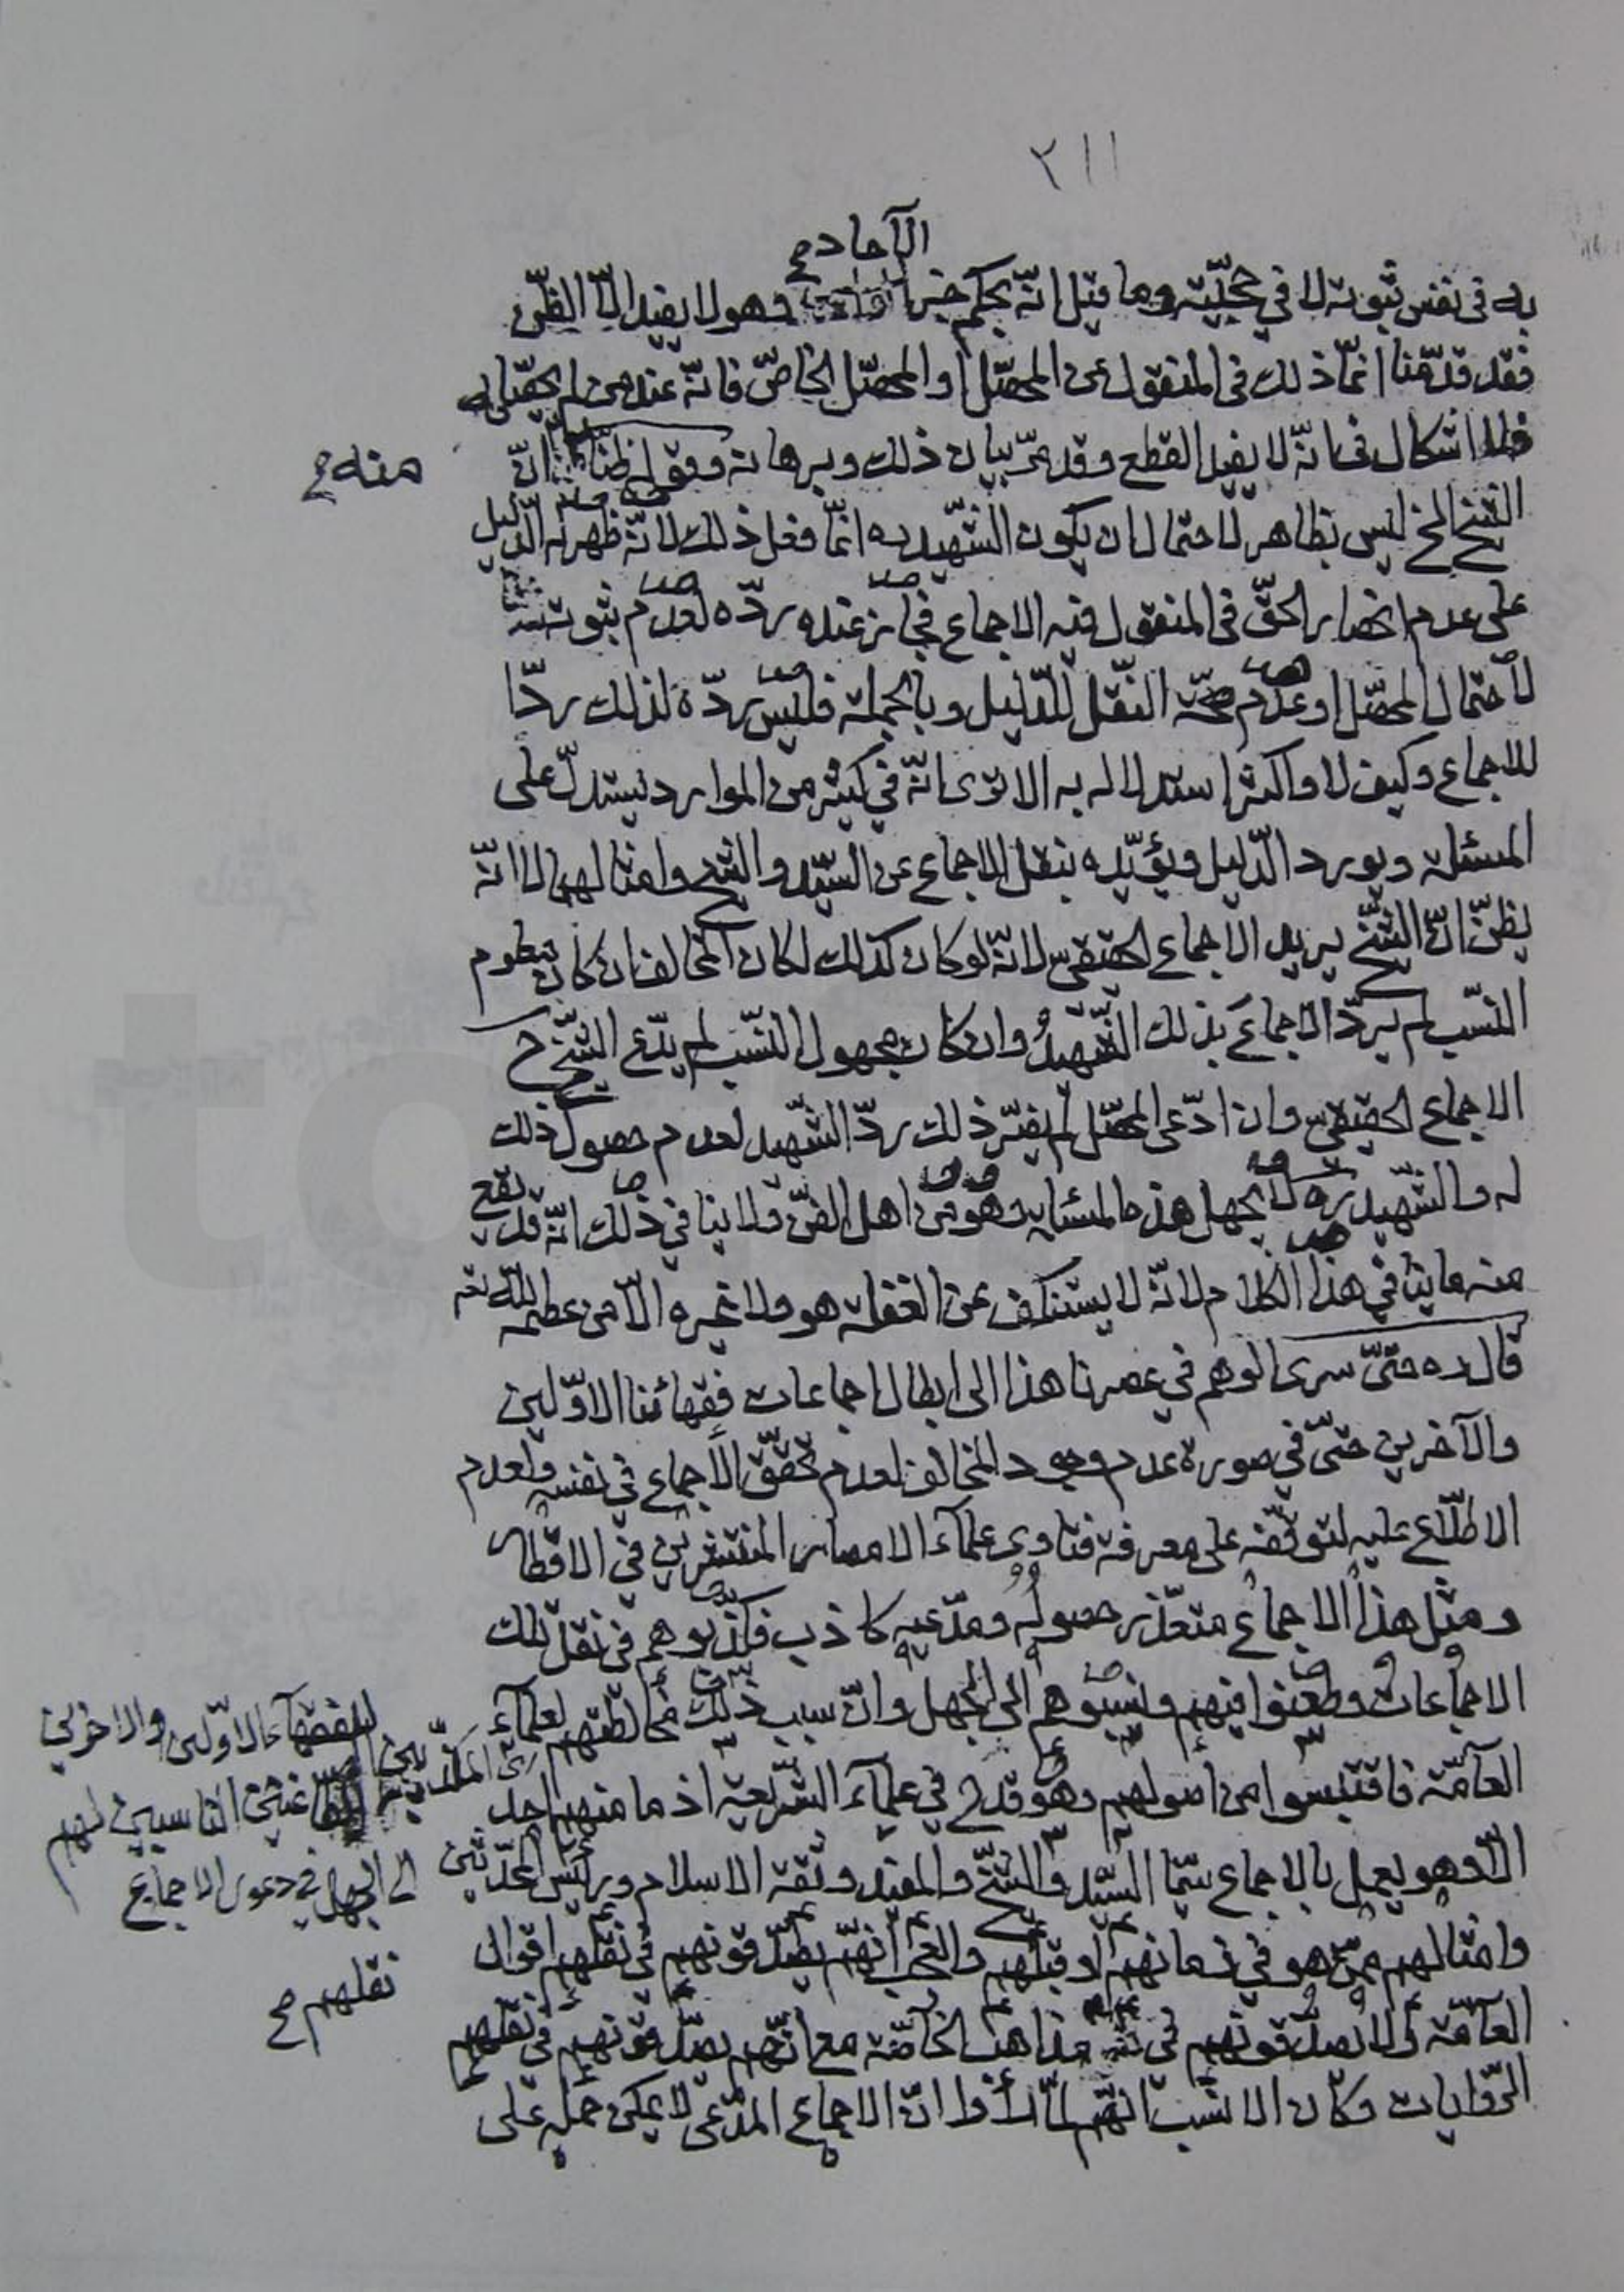 ٢١١
الآحاد صح
به فى نفس ثبوته لا في حجّيّته وما قيل انّه بحكم خبر وهو لا يفيد الّا الظنّ
فقد قدّمنا انّما ذلك فى المنقول عن المحصّل او المحصّل الخاصّ فانّه عند من لم يحصّل له
فلا اشكال فى انّه لا يفيد القطع وقد مرّ بيان ذلك وبرهانه وقوله ظنّا انّ
منه صح
الشيخ الخ ليس بظاهر لاحتمال ان يكون الشهيد ره انّما فعل ذلك لانّه ظهر له الدّليل
على عدم انحصار الحقّ فى المنقول فيه الاجماع فجاز عنده ردّه لعدم ثبوته
لاحتمال المحصّل او عدم صحّة النقل للدّليل وبالجملة فليس ردّه لذلك ردّا
للاجماع وكيف لا واكثر استدلاله به الا ترى انّه في كثير من الموارد يستدلّ على
المسئلة ويورد الدّليل ويؤيّده بنقل الاجماع عن السيّد والشيخ وامثالهما لا انّه
يظنّ انّ الشيخ يريد الاجماع الحقيقى لانّه لو كان كذلك لكان المخالف ان كان معلوم
النسب لم يردّ الاجماع بذلك الشهيد وان كان مجهول النسب لم يدّع الشيخ ح
الاجماع الحقيقى وان ادّعى المحصّل لم يضرّ ذلك ردّ الشهيد لعدم حصول ذلك
له والشهيد ره لا يجهل هذه المسئلة وهو من اهل الفنّ ولا ينافي ذلك انّه قد يقع
منه ما ينافي هذا الكلام لانّه لا يستنكف عن الغفلة هو ولا غيره الّا من عصمه اللّه تعه
قال ره حتّى سرى الوهم في عصرنا هذا الى ابطال اجماعات فقهائنا الاوّلين
والآخرين حتّى في صورة عدم وجود المخالف لعدم تحقّق الاجماع في نفسه ولعدم
الاطّلاع عليه لتوقّفه على معرفة فتاوى علماء الامصار المنتشرين في الاقطار
ومثل هذا الاجماع متعذّر حصوله ومدّعيه كاذب فكذّبوهم في نقل تلك
الاجماعات وطعنوا فيهم ونسبوهم الى الجهل وانّ سبب ذلك مخالطتهم لعلماء
العامّة فاقتبسوا من اصولهم وهو قدح في علماء الشّريعة اذ ما منهم احد
للفقهاء الاوّلين والاخرين
الطاعنين الناسبين لهم
الى الجهل في دعوى الاجماع
الّا وهو يعمل بالاجماع سيّما السيّد والشيخ والمفيد وثقة الاسلام ورئيس المحدّثين
وامثالهم ممّن هو في زمانهم او قبلهم والعجب انّهم يصدّقونهم في نقلهم اقوال
العامّة ولا يصدّقونهم في مذاهب الخاصّة مع انّهم يصدّقونهم في نقلهم
نقلهم صح
الرّوايات وكان الانسب انّهم لمّا رأوا انّ الاجماع المدّعى لا يمكن حمله على